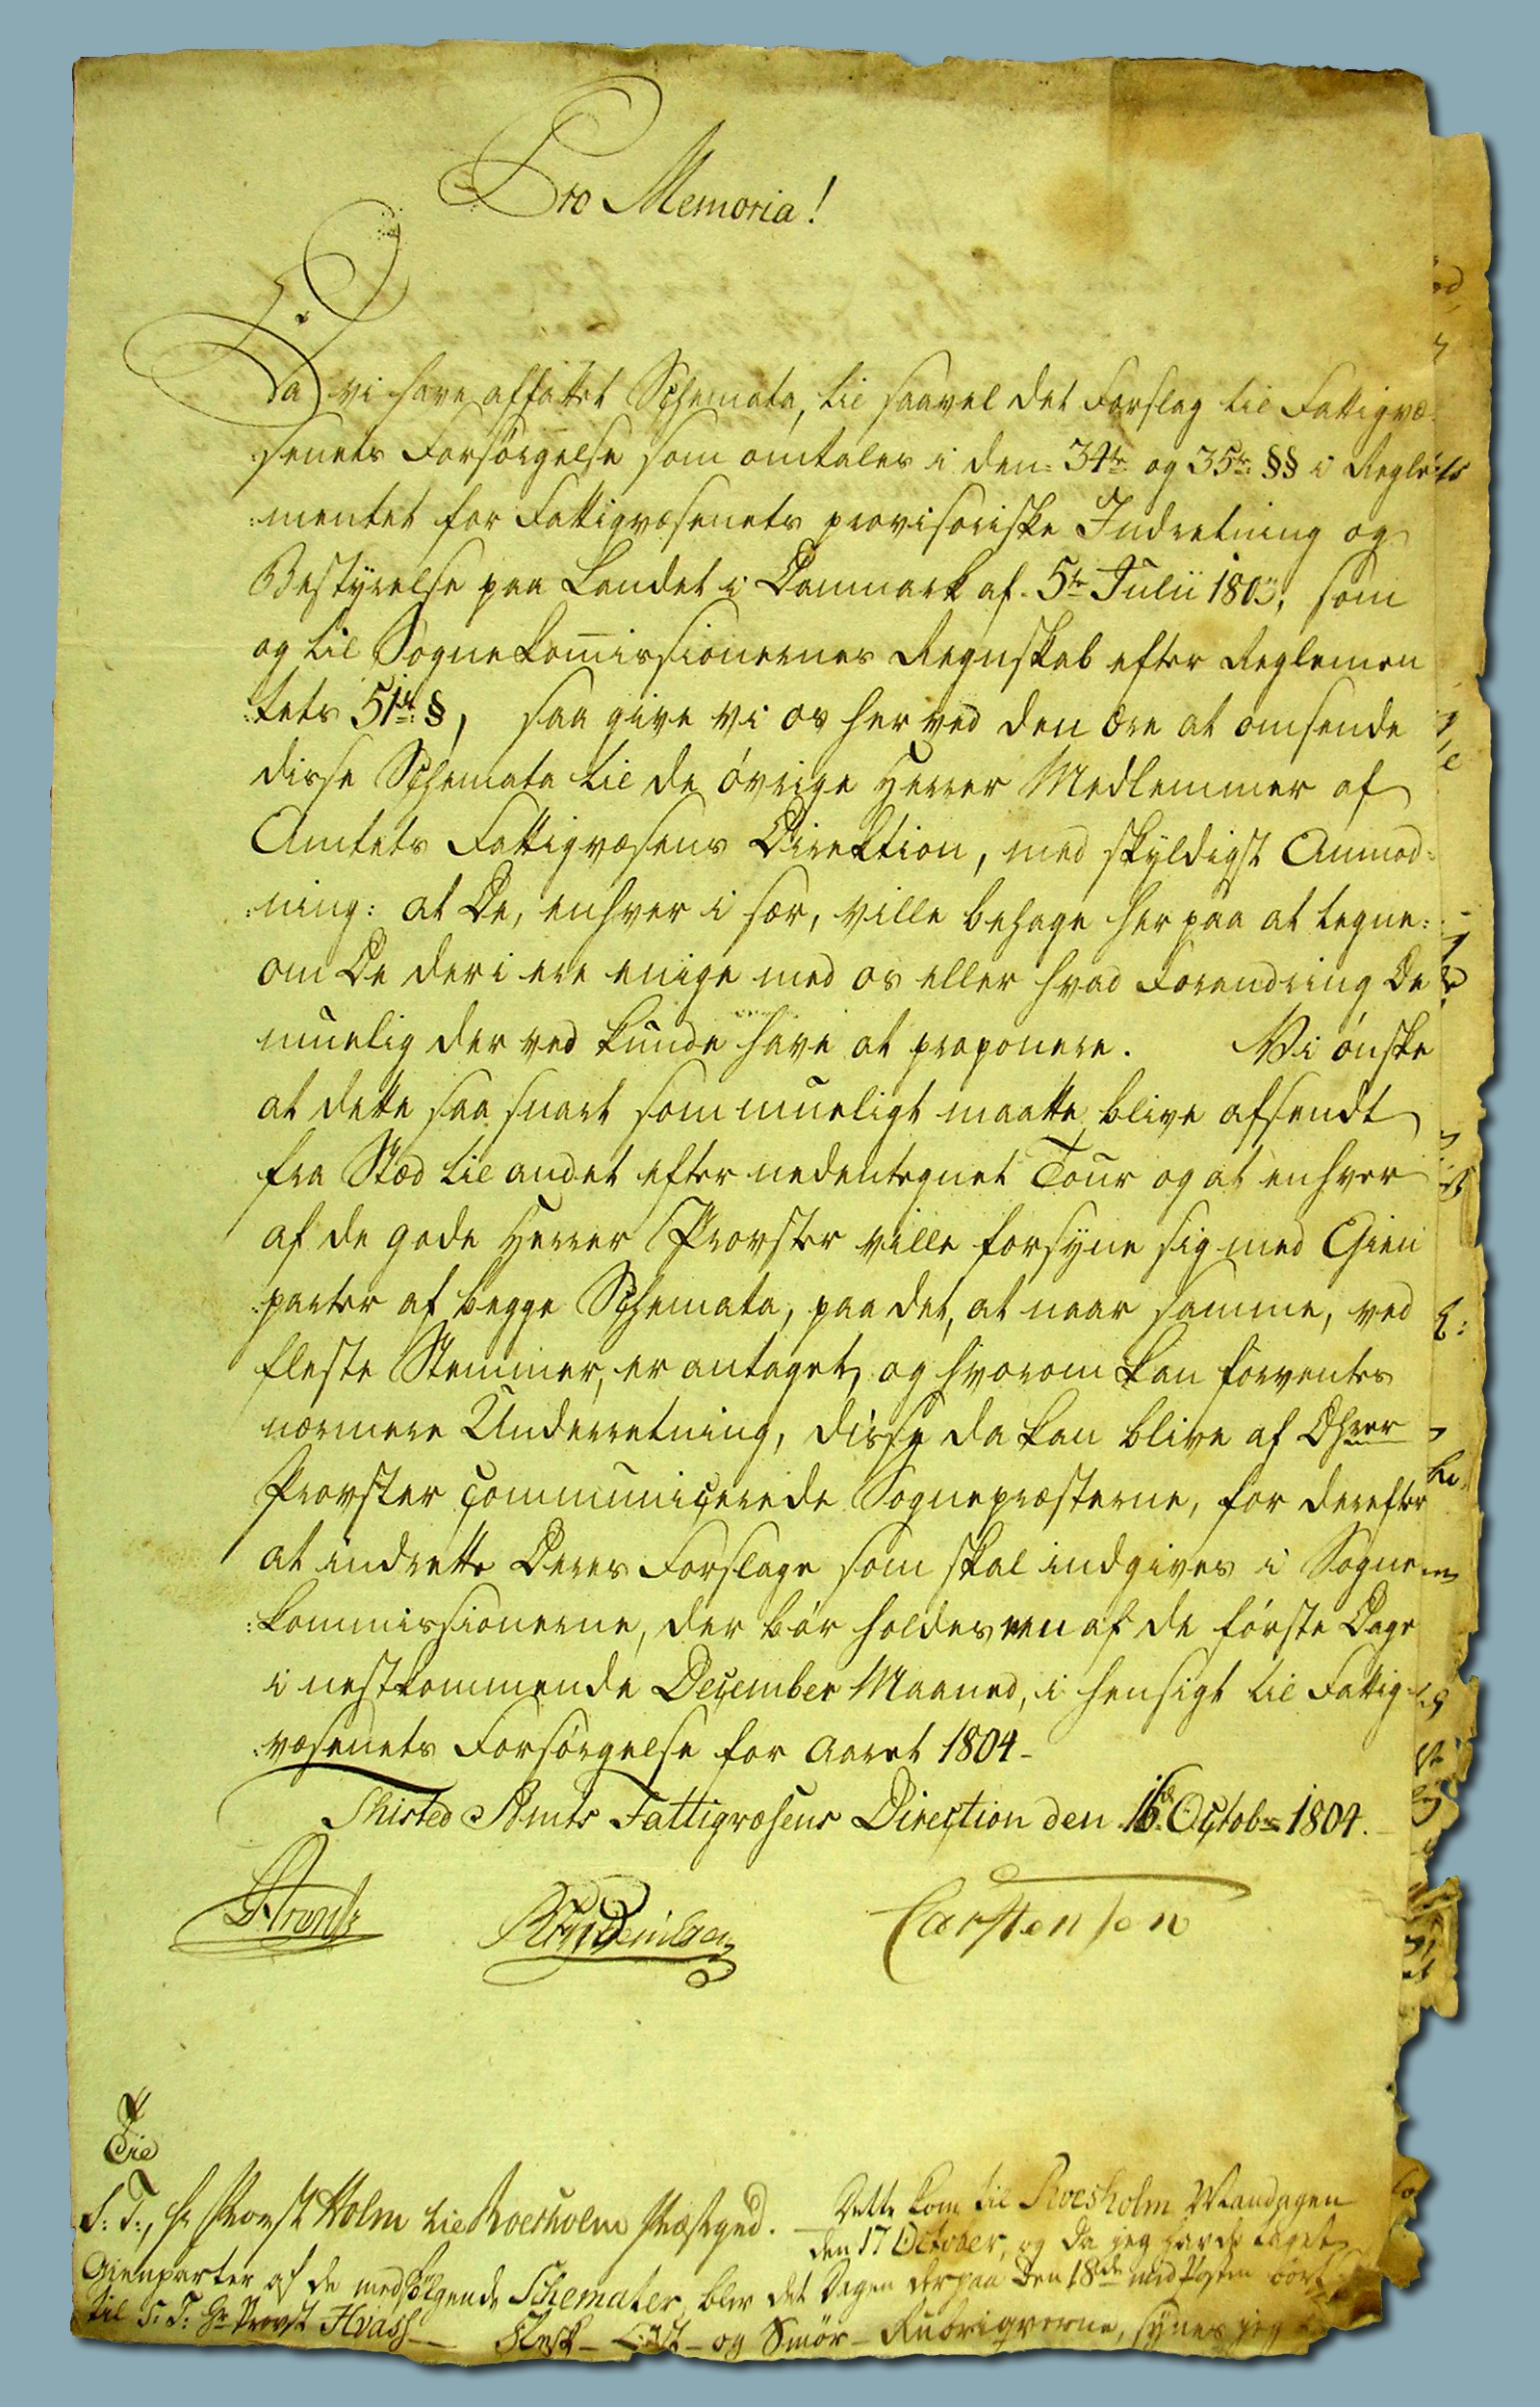 Pro Memoria!
Da vi have affattet Schemata, til saavel det Forslag til Fattigvæ-
:senets Forsørgelse som omtales i den 34te og 35te §§ i Regle-
:mentet for Fattigvæsenets provisoriske Indretning og
Bestÿrelse paa Landet i Danmark af 5te Julii 1803, som
og til Sognekom̅issionernes Regnskab efter Reglemen
:tets 51de §, saa give vi os herved den Ære at omsende
disse Schemata til de øvrige Herrer Medlemmer af
Amtets Fattigvæsens Direktion, med skÿldigst Anmod-
:ning: at De, enhver i sær, ville behage her paa at tegne:
om De deri ere enige med os eller hvad Forandring De
muelig der ved kunde have at proponere. Vi ønske
at dette saa snart som mueligt maatte blive afsendt
fra Stæd til andet efter nedentegnet Tour og at enhver
af de gode Herrer Provster ville forsÿne sig med Gien
:parter af begge Schemata, paa det, at naar samme, ved
fleste Stemmer, er antaget, og hvorom kan forventes
nærmere Underretning, disse da kan blive af DHrer
Provster communicerede Sognepræsterne, for derefter
at indrette Deres Forslage som skal indgives i Sogne
:kommissionerne, der bør holdes een af de første Dage
i nestkommende December Maaned, i hensigt til Fattig-
:væsenets Forsørgelse for Aaret 1804-
Thisted Amts Fattigvæsens Direction den 16de Octobr 1804.
Carstensen
Til
S: T:, Hr Provst Holm til Roesholm Præstgrd. - Dette kom til Roesholm Mandagen
den 17 October, og da jeg havde taget
Gienparter af de medfølgende Schemater, blev det Dagen derpaa den 18de med Posten bort
til S: T: Hr Provst Hvass - Flesk - Ost - og Smør - Rubriqverne, synes jeg